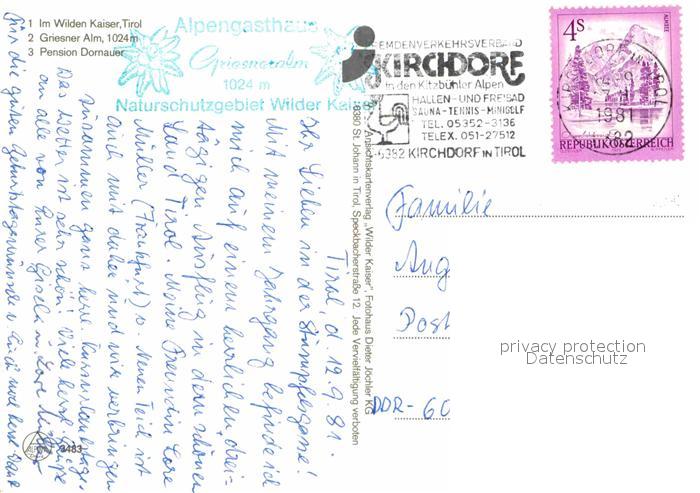 1 Im Wilden Kaiser, Tirol
2 Griesner Alm, 1024m
3 Pension Dornauer
Alpengasthaus
Griesneralm
1024 m
Naturschutzgebiet Wilder Kaiser
FREMDENVERKEHRSVERBAND
KIRCHDORF
in den Kitzbühler Alpen
HALLEN- UND FREIBAD
SAUNA-TENNIS-MINIGOLF
TEL. 05352-3136
TELEX. 051-27512
6382 KIRCHDORF IN TIROL
4S
1981
6382
REPUBLIK ÖSTERREICH
Ansichtskartenverlag „Wilder Kaiser", Fotohaus Dieter Jöchler KG
6380 St. Johann in Tirol, Speckbacherstraße 12. Jede Vervielfältigung verboten
Tirol, d. 12.9.81.
Ihr Lieben in der Stümpfelgasse!
Mit meinem Jahrgang befinde ich
mich auf einem herrlichen drei-
tägigen Ausflug in dem schönen
Land Tirol. Meine Freundin Lore
Müller (Frankfurt) u. Neuen Teich ist
auch mit dabei und wir verbringen
zusammen ganz herrl.
Das Wetter ist sehr schön! Viele herzl. Grüße
an alle von Eurer Gisela u. Lore
Für die guten Geburtstagswünsche Euch noch herzl. Dank
Familie
Aug
Post
DDR-60
privacy protection
Datenschutz
3483